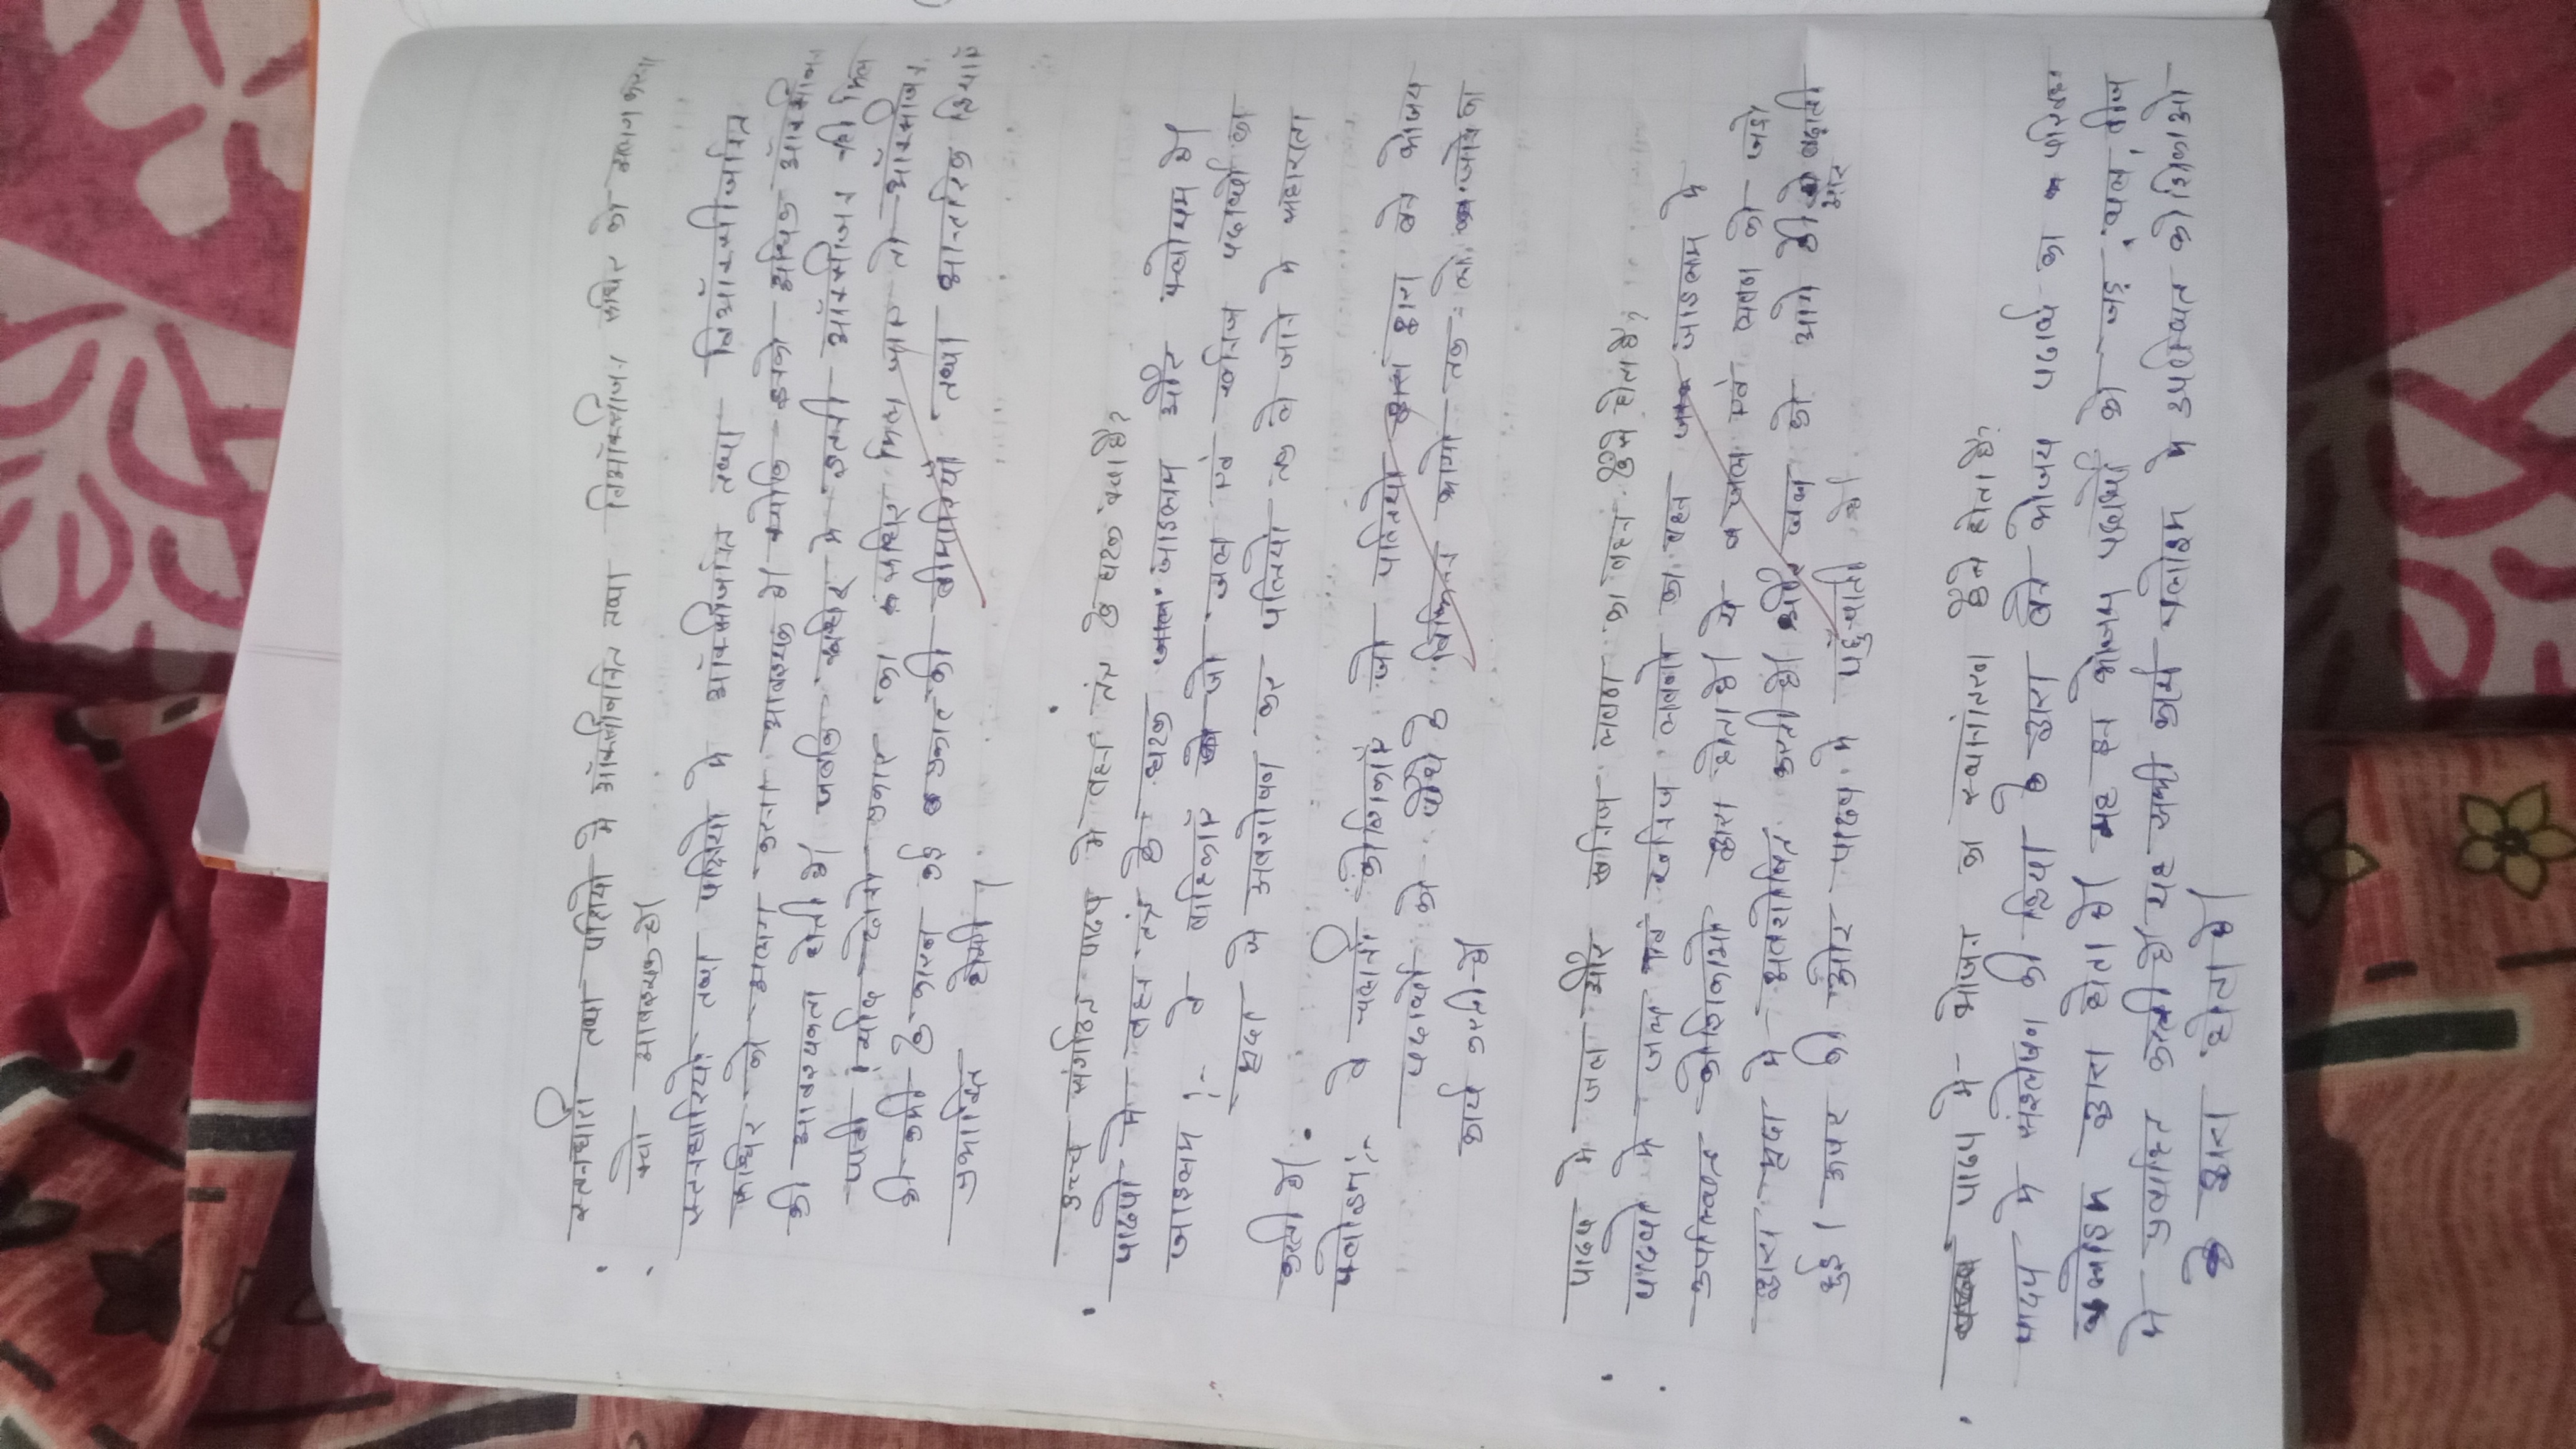 स्तनधारी तथा पक्षियो मे ऑक्सीजनित तथा विऑक्सीजन रुधिर को अलग करना
क्यो आवश्यक है।
स्तनधारियो तथा पक्षियो मे ऑक्सीजनित तथा विऑक्सीजनित
रूधिर को अलग करना आवश्यक है। क्योकि इनको अधिक ऑक्सीजन
की आवश्यकता होती है। जबकि रूधिर मे इतनी ऑक्सीजन नही मिल
पाती। यदि दोनो प्रकार का रूधिर मिल जाए तो ऑक्सीजन
की कमी के कारण कई प्रकार की बीमारियाँ तथा आन्तरिक क्रियाएँ
प्रभावित होगी।
उच्च संगठित पादप मे वहन तंत्र के घटक क्या है?
पादपो मे वहन तंत्र के घटक जाइलम और फ्लोएम है।
जाइलम :- वे वाहिकाएँ जो जल एवं खनिज पदार्थो का
मृदा से अवशोषण कर पत्तियो तक ले जाने मे सहायता
करती है।
फ्लोएम :- वे पदार्थी कोशिकाएँ जो पत्तियो द्वारा बने भोज्य
पदार्थो को पौधे के विभिन्न भागो तक ले जाने का
कार्य करती है।
पादप मे जल और खनिज लवण का वहन कैसे होता है?
पादपो मे जल एवं खनिज लवणो का वहन जाइलम मे
उपस्थित कोशिकाओ द्वारा होता है ये जल एवं लवण को जड़ो
द्वारा मृदा मे अवशोषित करती है। और जल को आगे की ओर बढ़ाती
हुई। ऊपर की ओर पादप मे पहुँचाती है।
पादप मे भोजन का स्थानांतरण कैसे होता है?
पादप मे संश्लेषण की क्रिया के द्वारा बने भोज्य पदार्थ का परिवहन
फ्लोइम द्वारा होता है। यह इन भोज्य पदार्थो को जड़, फल, बीज
मे प्रवाहित करती है। यह सभी कार्य फ्लोइम मे उपस्थित कोशिकाओ
के द्वारा होता है।